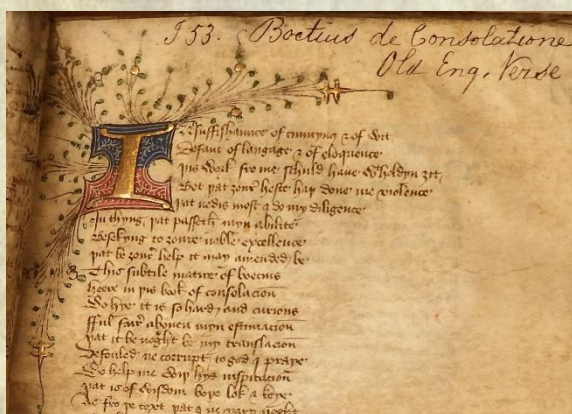 J 53. Boetius de Consolatione
Old Eng. Verse
Insuffishaunce of cunnyng & of wit
Defaut of langage & of eloquence
þis work fro me schuld have wholdyn ȝit
Bot þat ȝour heste haþ done me violence
þat nedis most I do my diligence
In thyng þat passeth myn abilite
Besekyng to ȝoure noble excellence
þat be ȝour help it may amended be
This subtile matere of boecius
Heere in þis book of consolacion
So hye it is so hard and curious
fful fair abouen myn estimacion
þat it be noght be my translacion
Defouled ne corrupt to god I praye
So help me wiþ hys inspiracion
þat is of wisdom boþe lok & keye
As fro þe text þat I ne vary noght